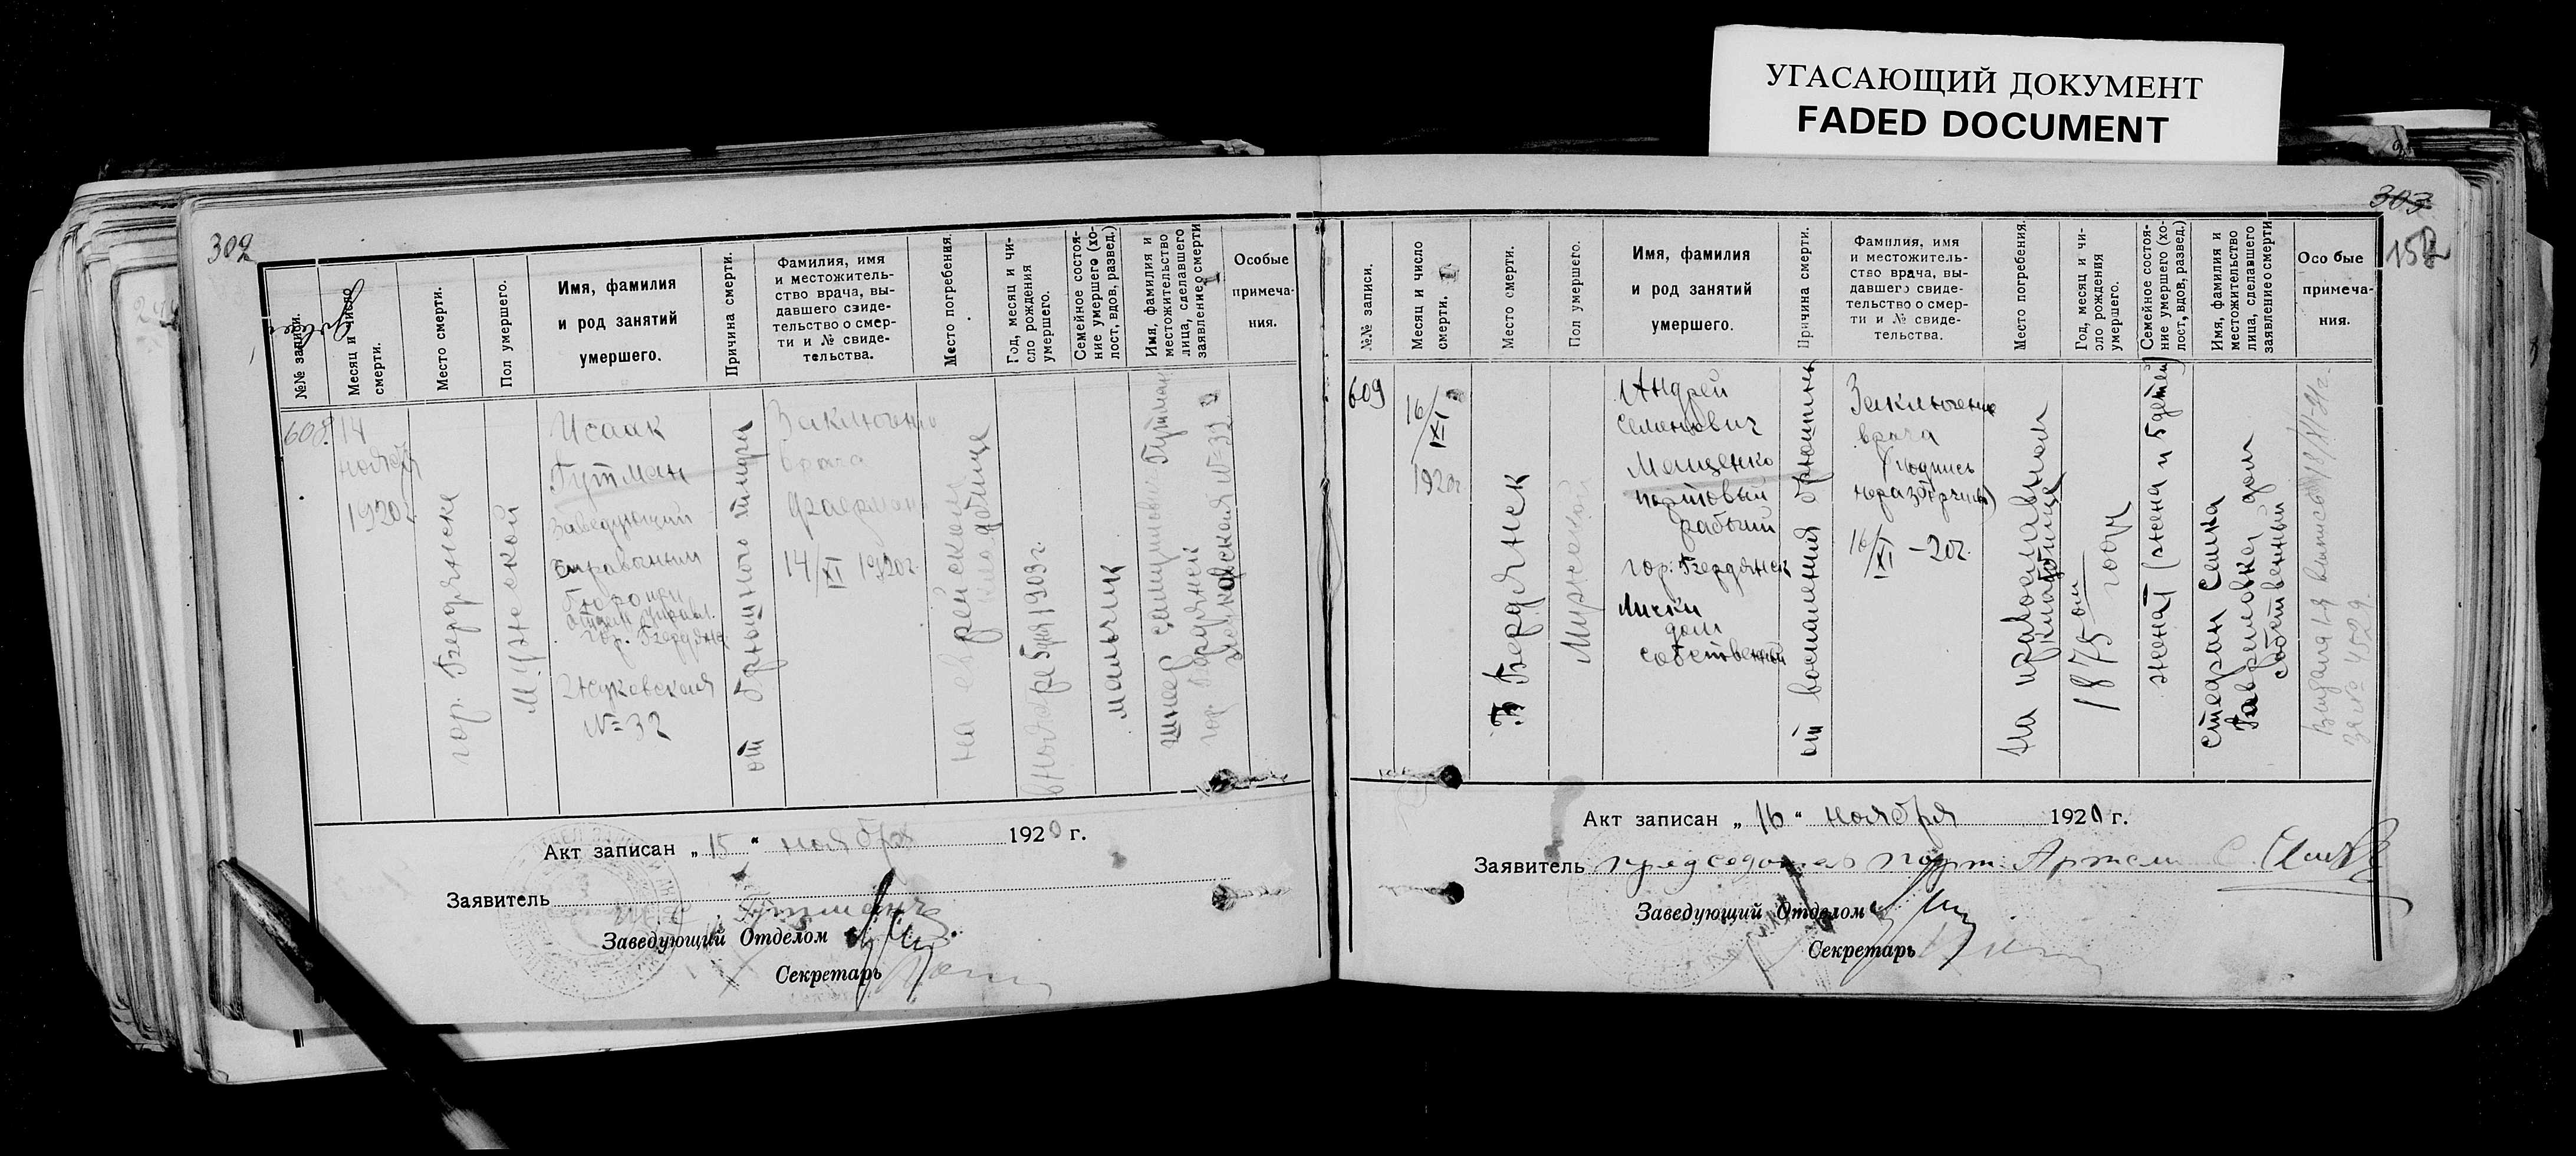 УГАСАЮЩИЙ ДОКУМЕНТ
FADED DOCUMENT
302
№№ записи.
Месяц и число
смерти.
Место смерти.
Пол умершего.
Имя, фамилия
и род занятий
умершего.
Причина смерти.
Фамилия, имя
и местожитель-
ство врача, вы-
давшего свиде-
тельство о смер-
ти и № свиде-
тельства.
Место погребения.
Год, месяц и чи-
сло рождения
умершего.
Семейное состоя-
ние умершего (хо-
лост, вдов, развед.)
Имя, фамилия и
местожительство
лица, сделавшего
заявление о смерти
Особые
примеча-
ния.
608.
14
ноября
1920г.
гор. Бердянске
Мужской
Исаак
Гутман
Заведующий
справочным
гор. Бердянск
Жуковская
№ 32
от брюшного тифа
Заключение
врача
14/XI 1920г.
на еврейском
кладбище
1903г.
мальчик
Самуилович Гутман
гор. Бердянск
Жуковская № 32
Акт записан „15“ ноября 1920 г.
Заявитель
Гутман
Заведующий Отделом
Секретарь
303
152
№№ записи.
Месяц и число
смерти.
Место смерти.
Пол умершего.
Имя, фамилия
и род занятий
умершего.
Причина смерти.
Фамилия, имя
и местожитель-
ство врача, вы-
давшего свиде-
тельство о смер-
ти и № свиде-
тельства.
Место погребения.
Год, месяц и чи-
сло рождения
умершего.
Семейное состоя-
ние умершего (хо-
лост, вдов, развед.)
Имя, фамилия и
местожительство
лица, сделавшего
заявление о смерти
Особые
примеча-
ния.
609
16/XI
1920г.
Бердянск
Мужской
Андрей
Семенович
Мащенко
портовый
рабочий
гор. Бердянск
Лички
дом
собственный
от воспаления брюшины
Заключение
врача
(подпись
неразборчива)
16/XI -20г.
На православном
кладбище
1875 ом
году
женат (жена и 5 детей)
Степан Семка
Гавриловка дом
собственный
за № 4529.
Акт записан „16“ ноября 1920 г.
Заявитель председатель порт. Артели С.
Заведующий Отделом
Секретарь